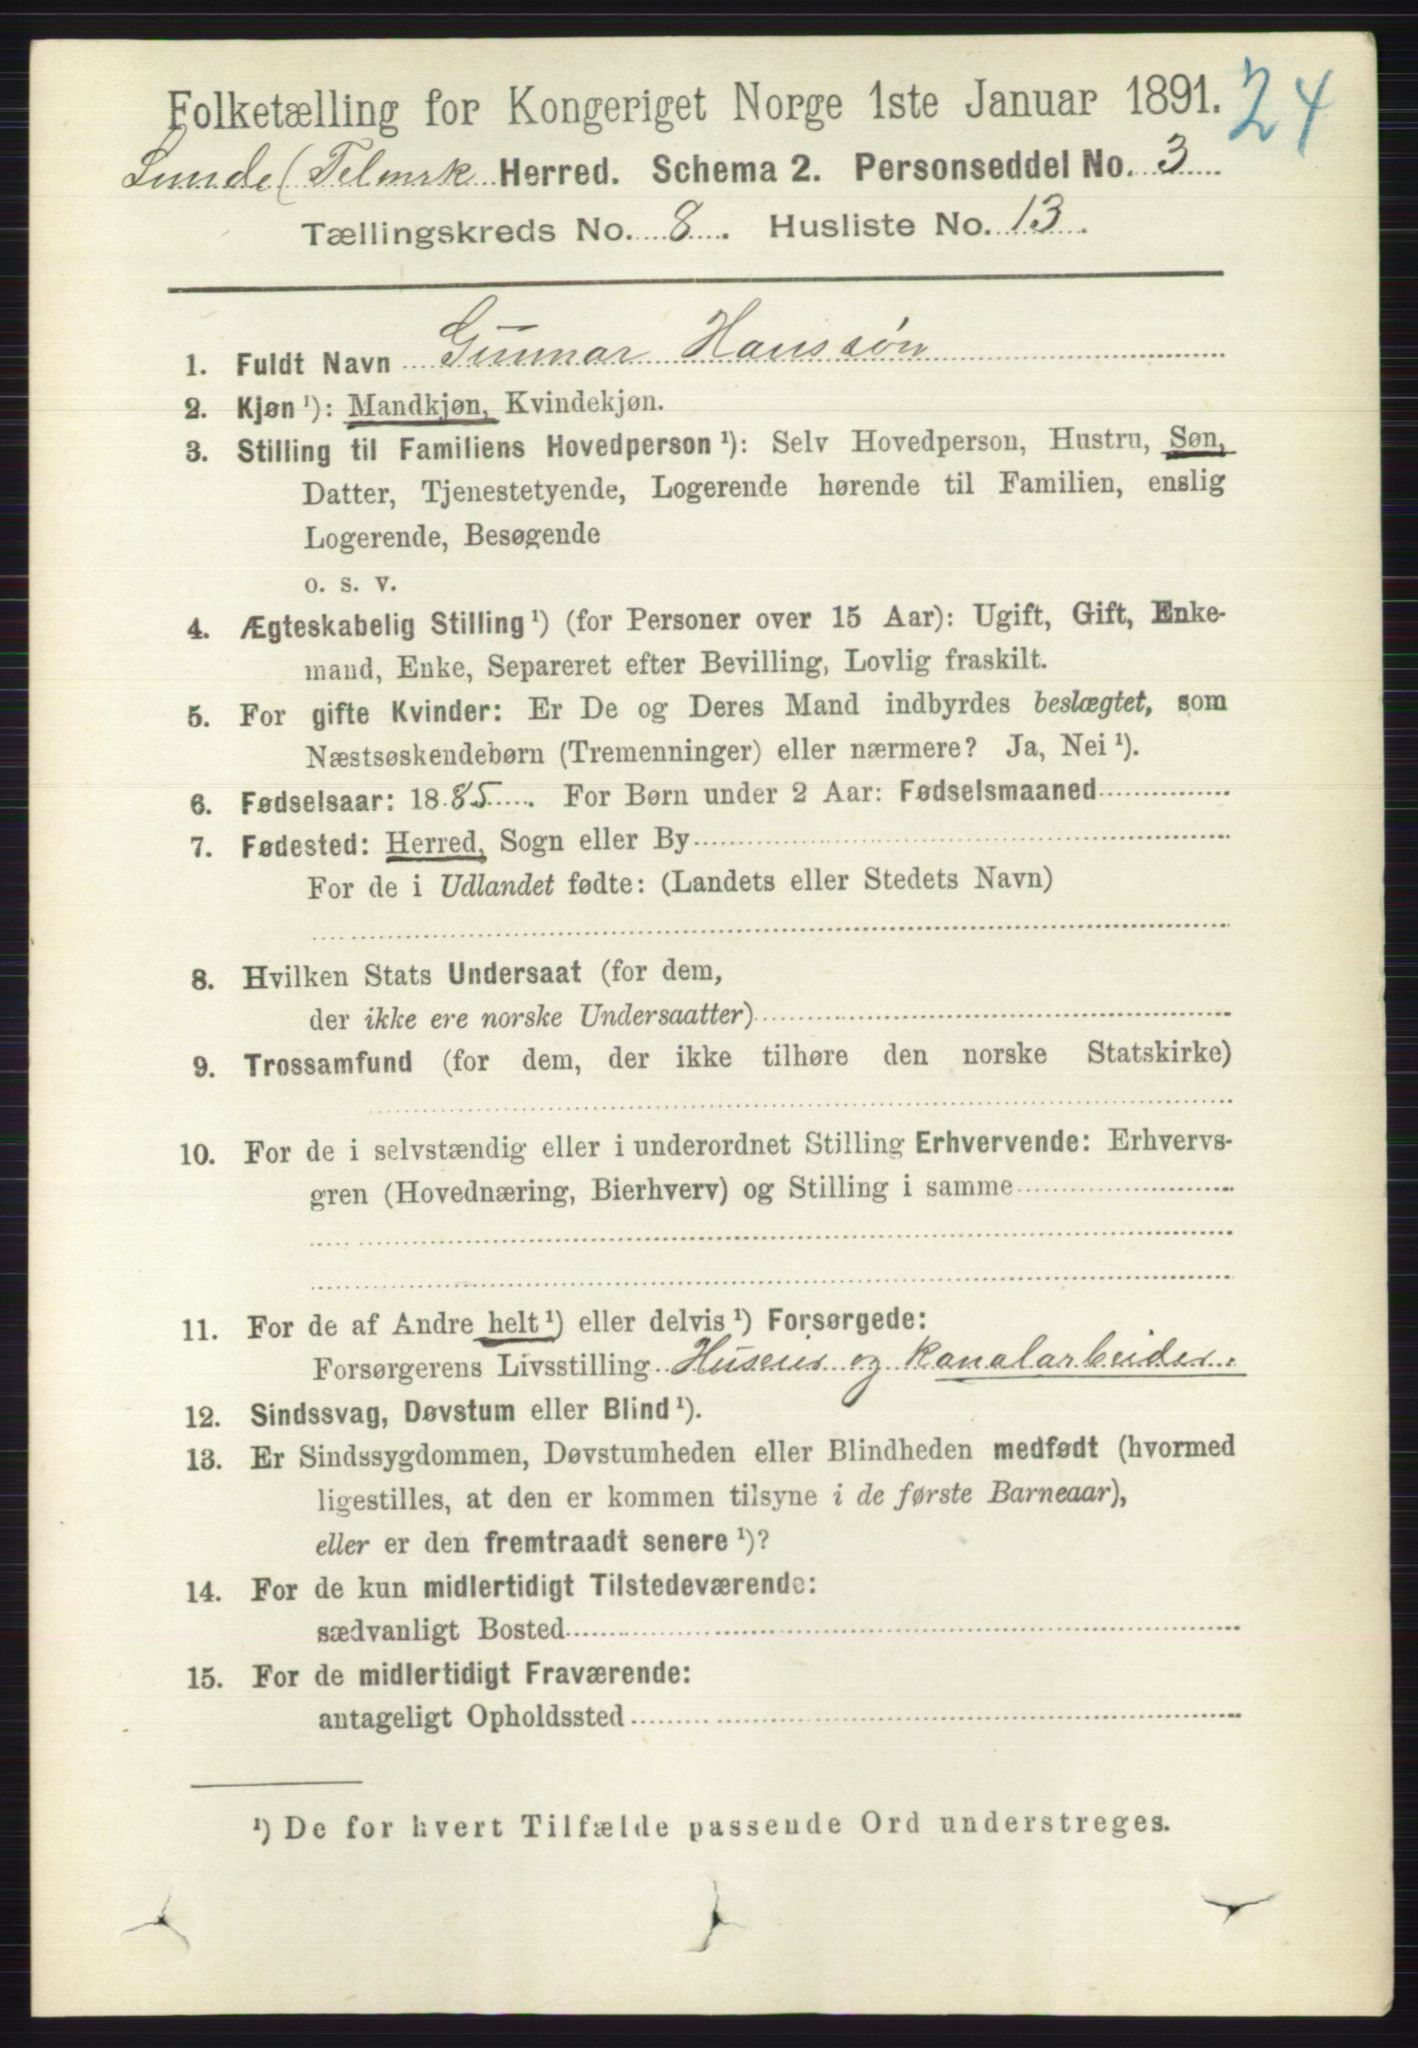 Folketælling for Kongeriget Norge 1ste Januar 1891. 24
Lunde (Telmrk Herred. Schema 2. Personseddel No. 3
Tællingskreds No. 8. Husliste No. 13.
1. Fuldt Navn Gunnar Hanssøn
2. Kjøn ¹): Mandkjøn, Kvindekjøn.
3. Stilling til Familiens Hovedperson ¹): Selv Hovedperson, Hustru, Søn,
Datter, Tjenestetyende, Logerende hørende til Familien, enslig
Logerende, Besøgende
o. s. v.
4. Ægteskabelig Stilling ¹) (for Personer over 15 Aar): Ugift, Gift, Enke-
mand, Enke, Separeret efter Bevilling, Lovlig fraskilt.
5. For gifte Kvinder: Er De og Deres Mand indbyrdes beslægtet, som
Næstsøskendebørn (Tremenninger) eller nærmere? Ja, Nei ¹).
6. Fødselsaar: 1885. For Børn under 2 Aar: Fødselsmaaned
7. Fødested: Herred, Sogn eller By
For de i Udlandet fødte: (Landets eller Stedets Navn)
8. Hvilken Stats Undersaat (for dem,
der ikke ere norske Undersaatter)
9. Trossamfund (for dem, der ikke tilhøre den norske Statskirke)
10. For de i selvstændig eller i underordnet Stilling Erhvervende: Erhvervs-
gren (Hovednæring, Bierhverv) og Stilling i samme
11. For de af Andre helt ¹) eller delvis ¹) Forsørgede:
Forsørgerens Livsstilling Huseier og Kanalarbeider.
12. Sindssvag, Døvstum eller Blind ¹).
13. Er Sindssygdommen, Døvstumheden eller Blindheden medfødt (hvormed
ligestilles, at den er kommen tilsyne i de første Barneaar),
eller er den fremtraadt senere ¹)?
14. For de kun midlertidigt Tilstedeværende:
sædvanligt Bosted
15. For de midlertidigt Fraværende:
antageligt Opholdssted
¹) De for hvert Tilfælde passende Ord understreges.